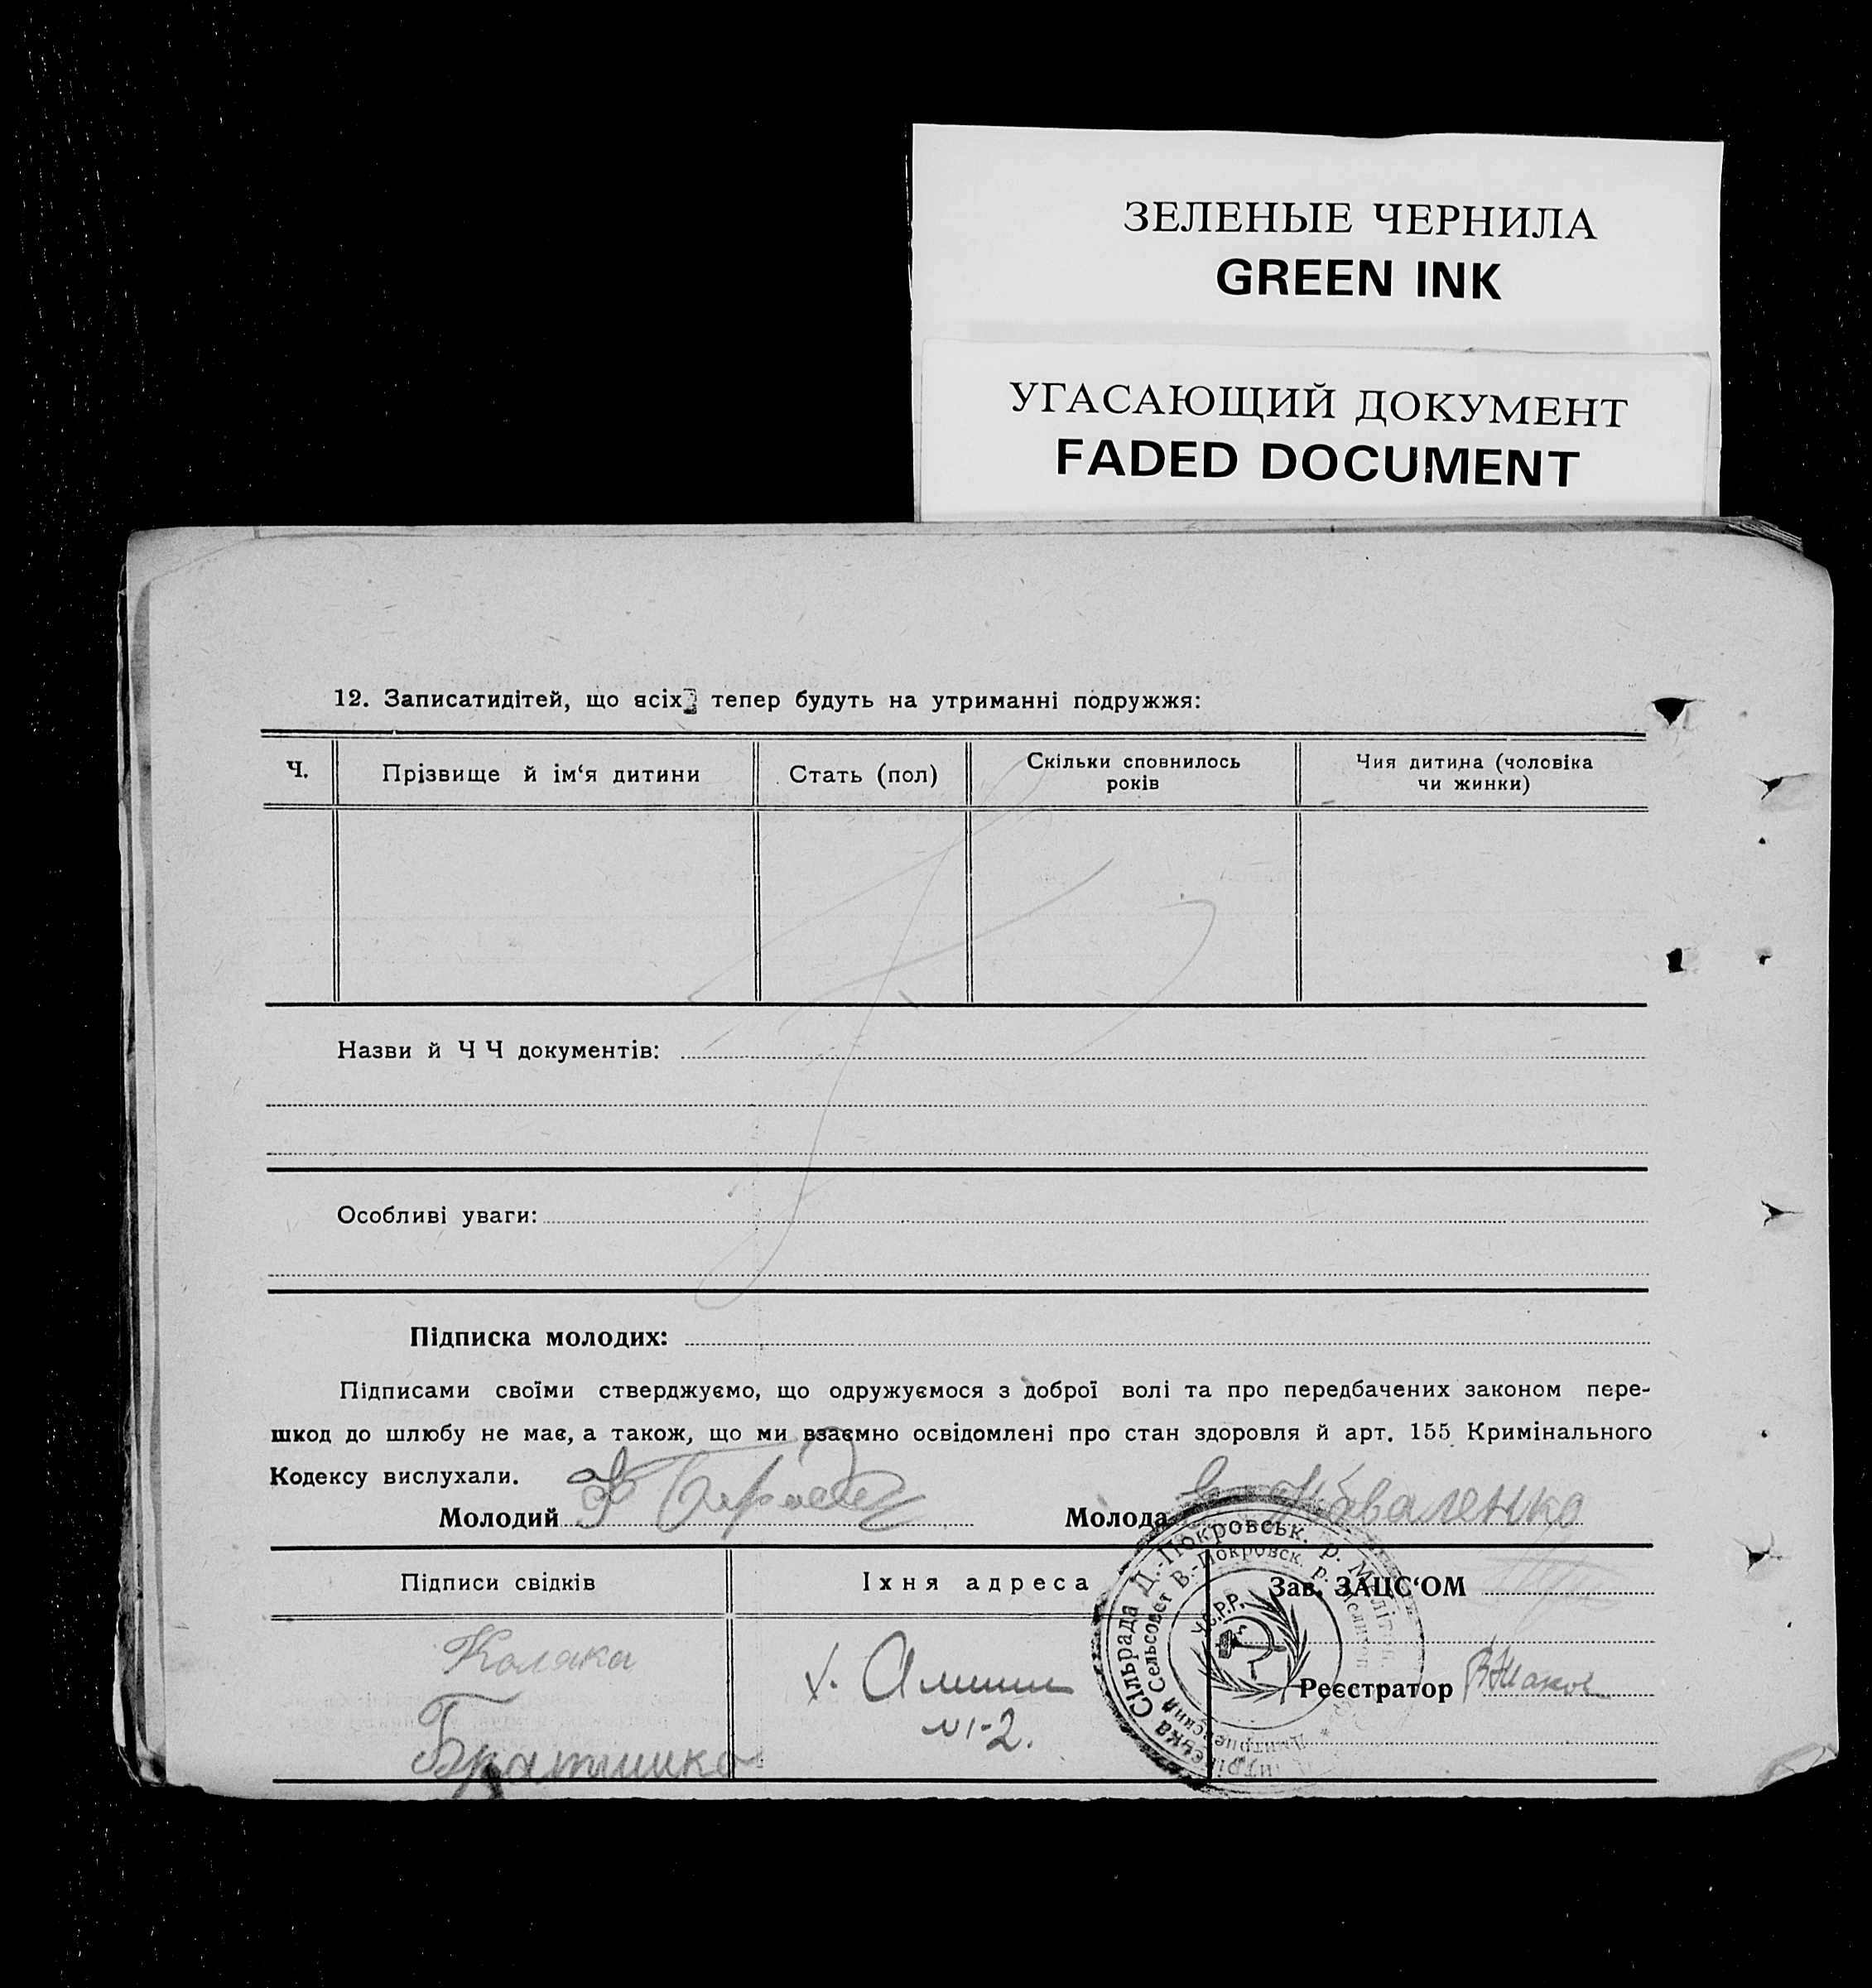 ЗЕЛЕНЫЕ ЧЕРНИЛА
GREEN INK
УГАСАЮЩИЙ ДОКУМЕНТ
FADED DOCUMENT
12. Записатидітей, що всіх тепер будуть на утриманні подружжя:
Ч.
Прізвище й ім‘я дитини
Стать (пол)
Скільки сповнилось
років
Чия дитина (чоловіка
чи жинки)
Назви й Ч Ч документів:
Особливі уваги:
Підписка молодих:
Підписами своїми стверджуємо, що одружуємося з доброї волі та про передбачених законом пере-
шкод до шлюбу не має, а також, що ми взаємно освідомлені про стан здоровля й арт. 155 Кримінального
Кодексу вислухали.
Молодий
Молода Коваленко
Підписи свідків
Їхня адреса
Зав. ЗАЦС‘ОМ
Коляка
Братишко
х.
№1-2.
Реєстратор
Сільрада Д.-Покровськ. р. Меліт
Сельсовет В.-Покровск. р.
У.С.Р.Р.